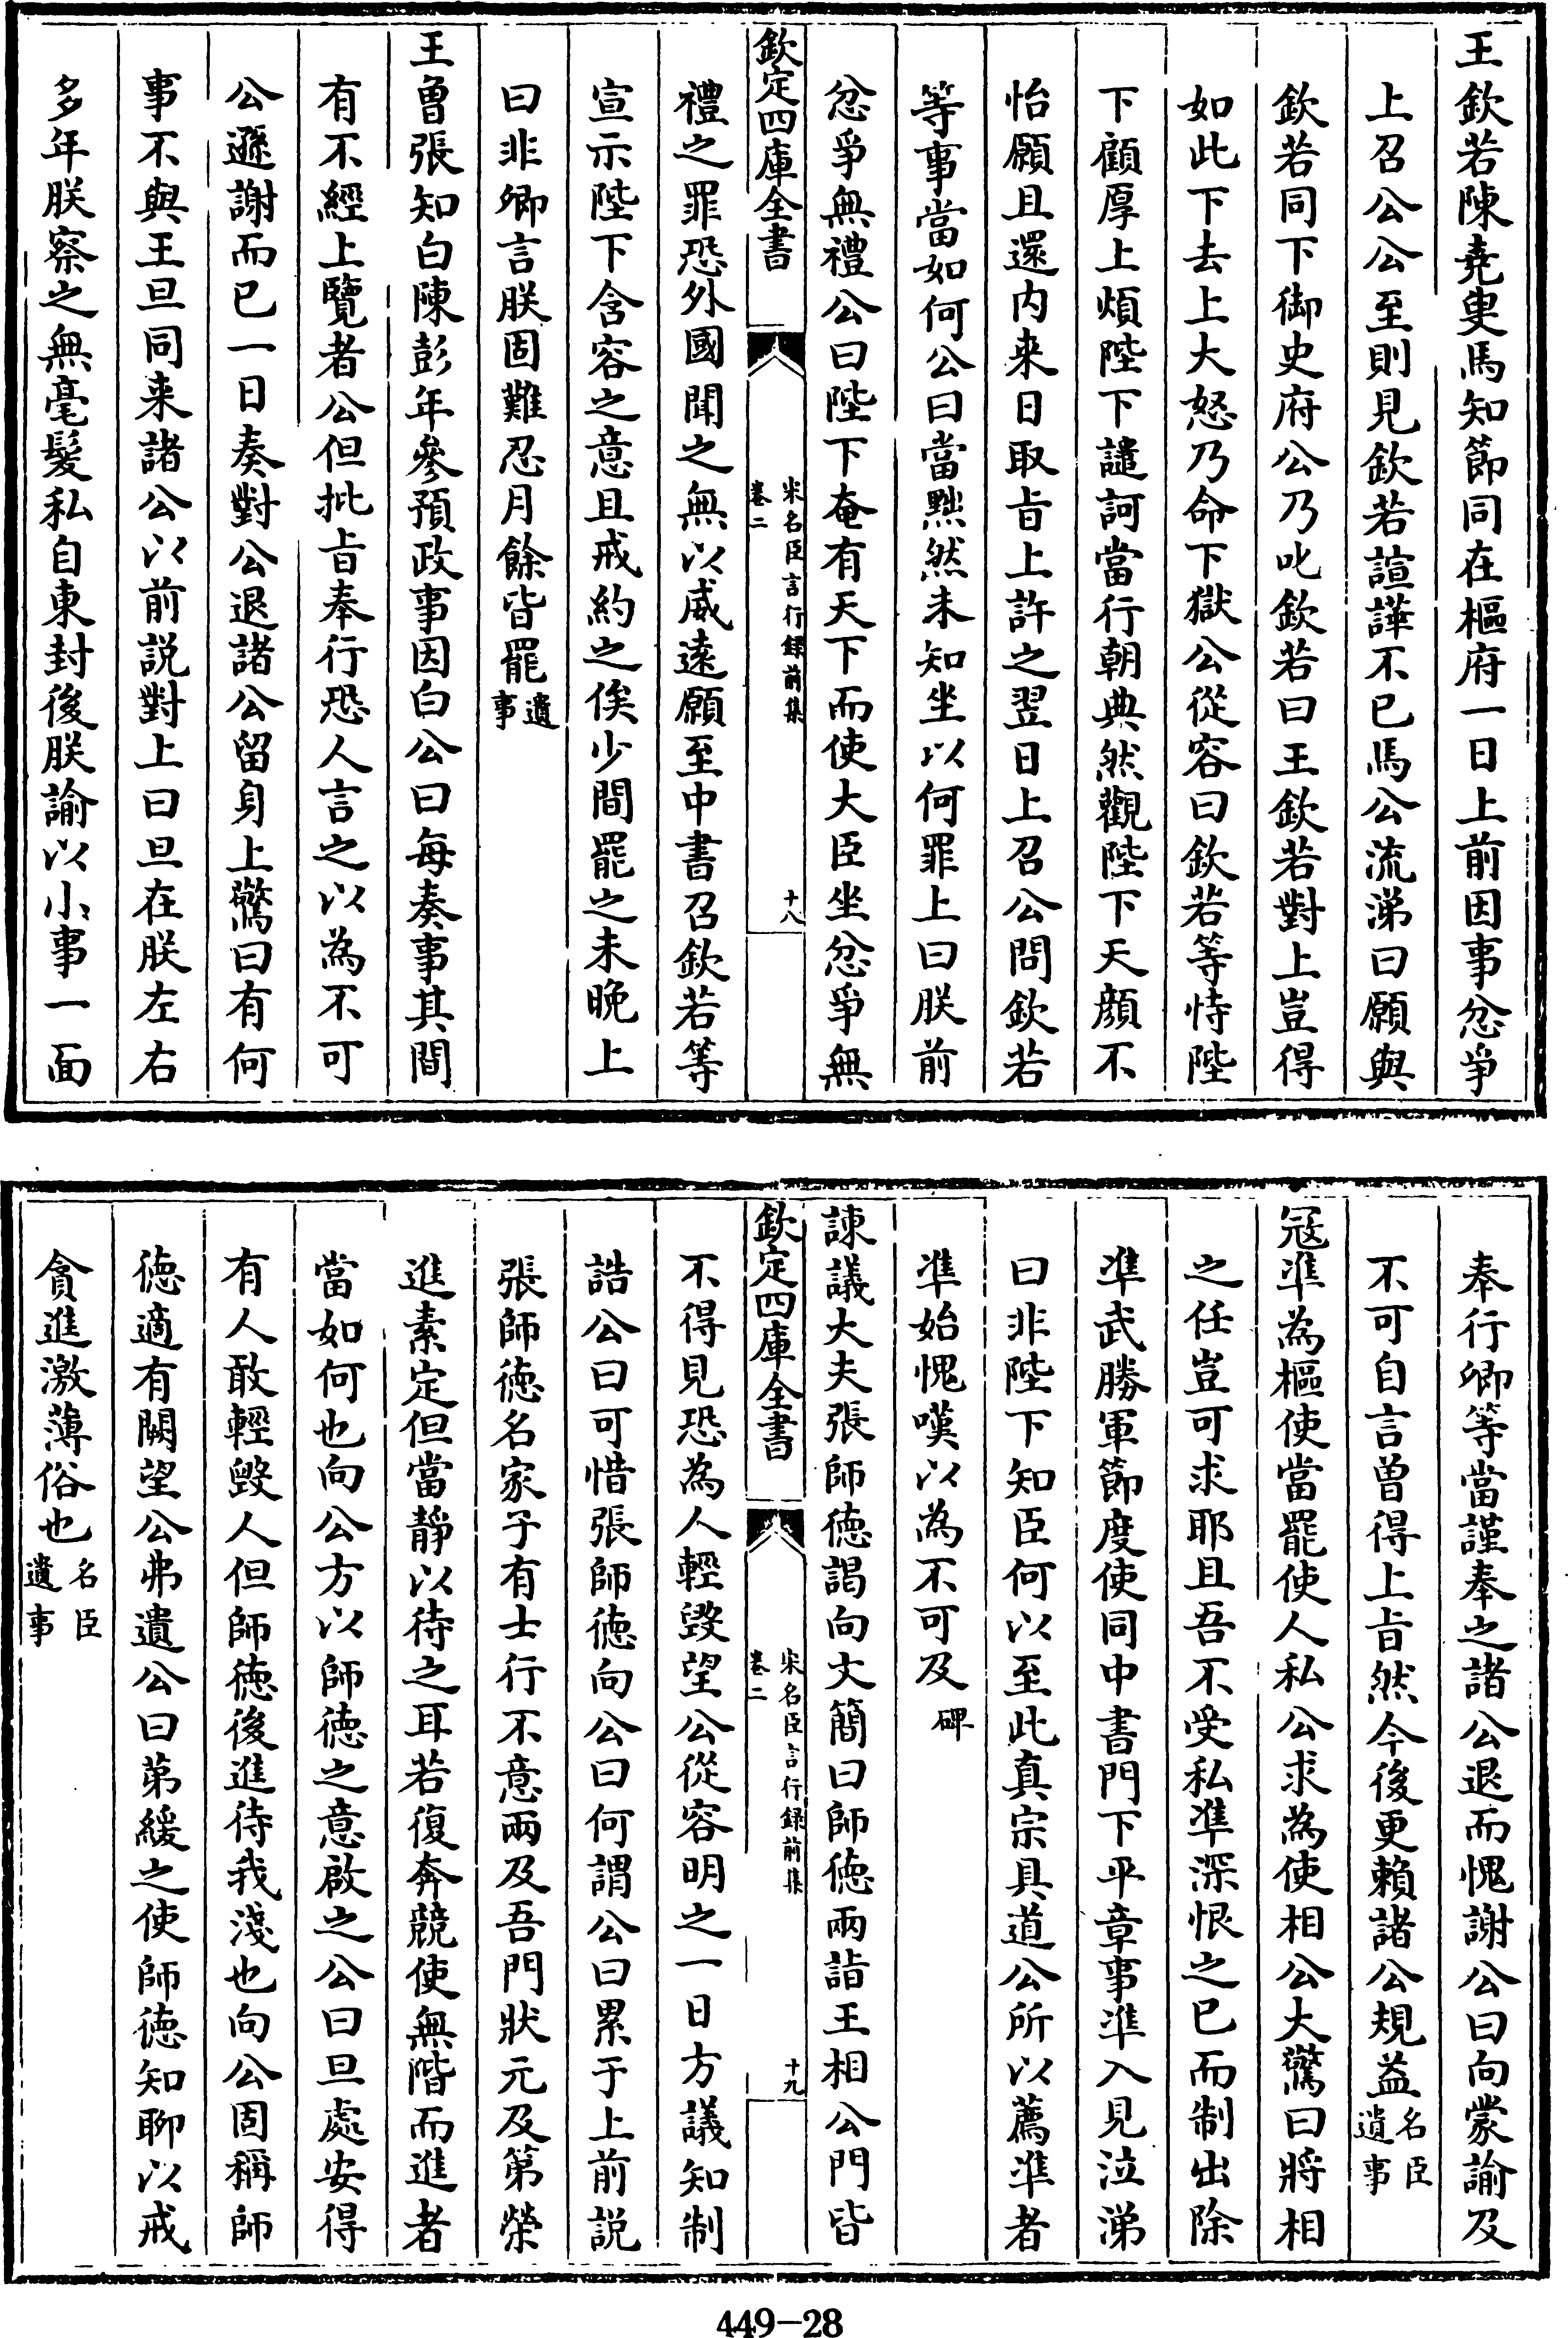 王欽若陳堯叟馬知節同在樞府一日上前因事忿爭
上召公公至則見欽若諠譁不已馬公流涕曰願與
欽若同下御史府公乃叱欽若曰王欽若對上豈得
如此下去上大怒乃命下獄公從容曰欽若等恃陛
下顧厚上煩陛下譴訶當行朝典然觀陛下天顔不
怡願且還内来日取㫖上許之翌日上召公問欽若
等事當如何公曰當黜然未知坐以何罪上曰朕前
忿爭無禮公曰陛下奄有天下而使大臣坐忿爭無
欽定四庫全書
宋名臣言行録前集
卷二
十八
禮之罪恐外國聞之無以威遠願至中書召欽若等
宣示陛下含容之意且戒約之俟少間罷之未晚上
曰非卿言朕固難忍月餘皆罷遺事
王曾張知白陳彭年參預政事因白公曰每奏事其間
有不經上覽者公但批㫖奉行恐人言之以為不可
公遜謝而已一日奏對公退諸公留身上驚曰有何
事不與王旦同来諸公以前説對上曰旦在朕左右
多年朕察之無毫髮私自東封後朕諭以小事一面
奉行卿等當謹奉之諸公退而愧謝公曰向蒙諭及
不可自言曾得上㫖然今後更賴諸公規益名臣遺事
冦凖為樞使當罷使人私公求為使相公大驚曰將相
之任豈可求耶且吾不受私凖深恨之已而制出除
凖武勝軍節度使同中書門下平章事凖入見泣涕
曰非陛下知臣何以至此真宗具道公所以薦凖者
凖始愧嘆以為不可及碑
諫議大夫張師德謁向文簡曰師德兩詣王相公門皆
欽定四庫全書
宋名臣言行録前集
卷二
十九
不得見恐為人輕毁望公從容明之一日方議知制
誥公曰可惜張師德向公曰何謂公曰累于上前説
張師德名家子有士行不意兩及吾門狀元及第榮
進素定但當靜以待之耳若復奔競使無階而進者
當如何也向公方以師德之意啟之公曰旦處安得
有人敢輕毁人但師德後進待我淺也向公固稱師
德適有闕望公弗遺公曰第緩之使師德知聊以戒
貪進激薄俗也名臣遺事
449-28